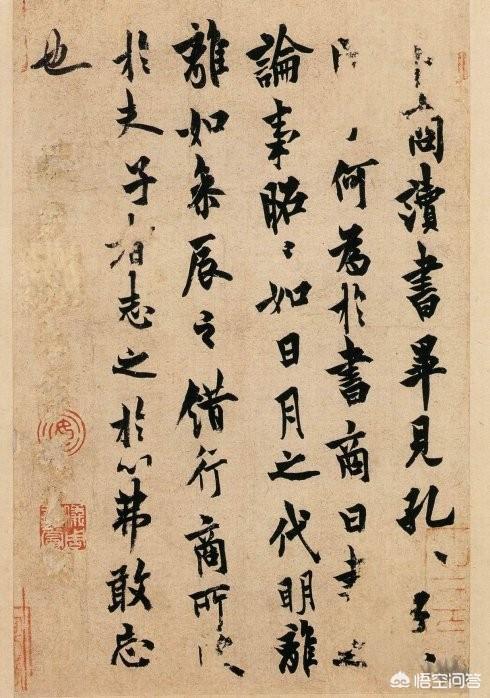 卜商問讀書畢見孔〻子〻
何為於書商曰書之
論事昭〻如日月之代明離
離如參辰之錯行商所受
於夫子者志之於心弗敢忘
也
悟空问答